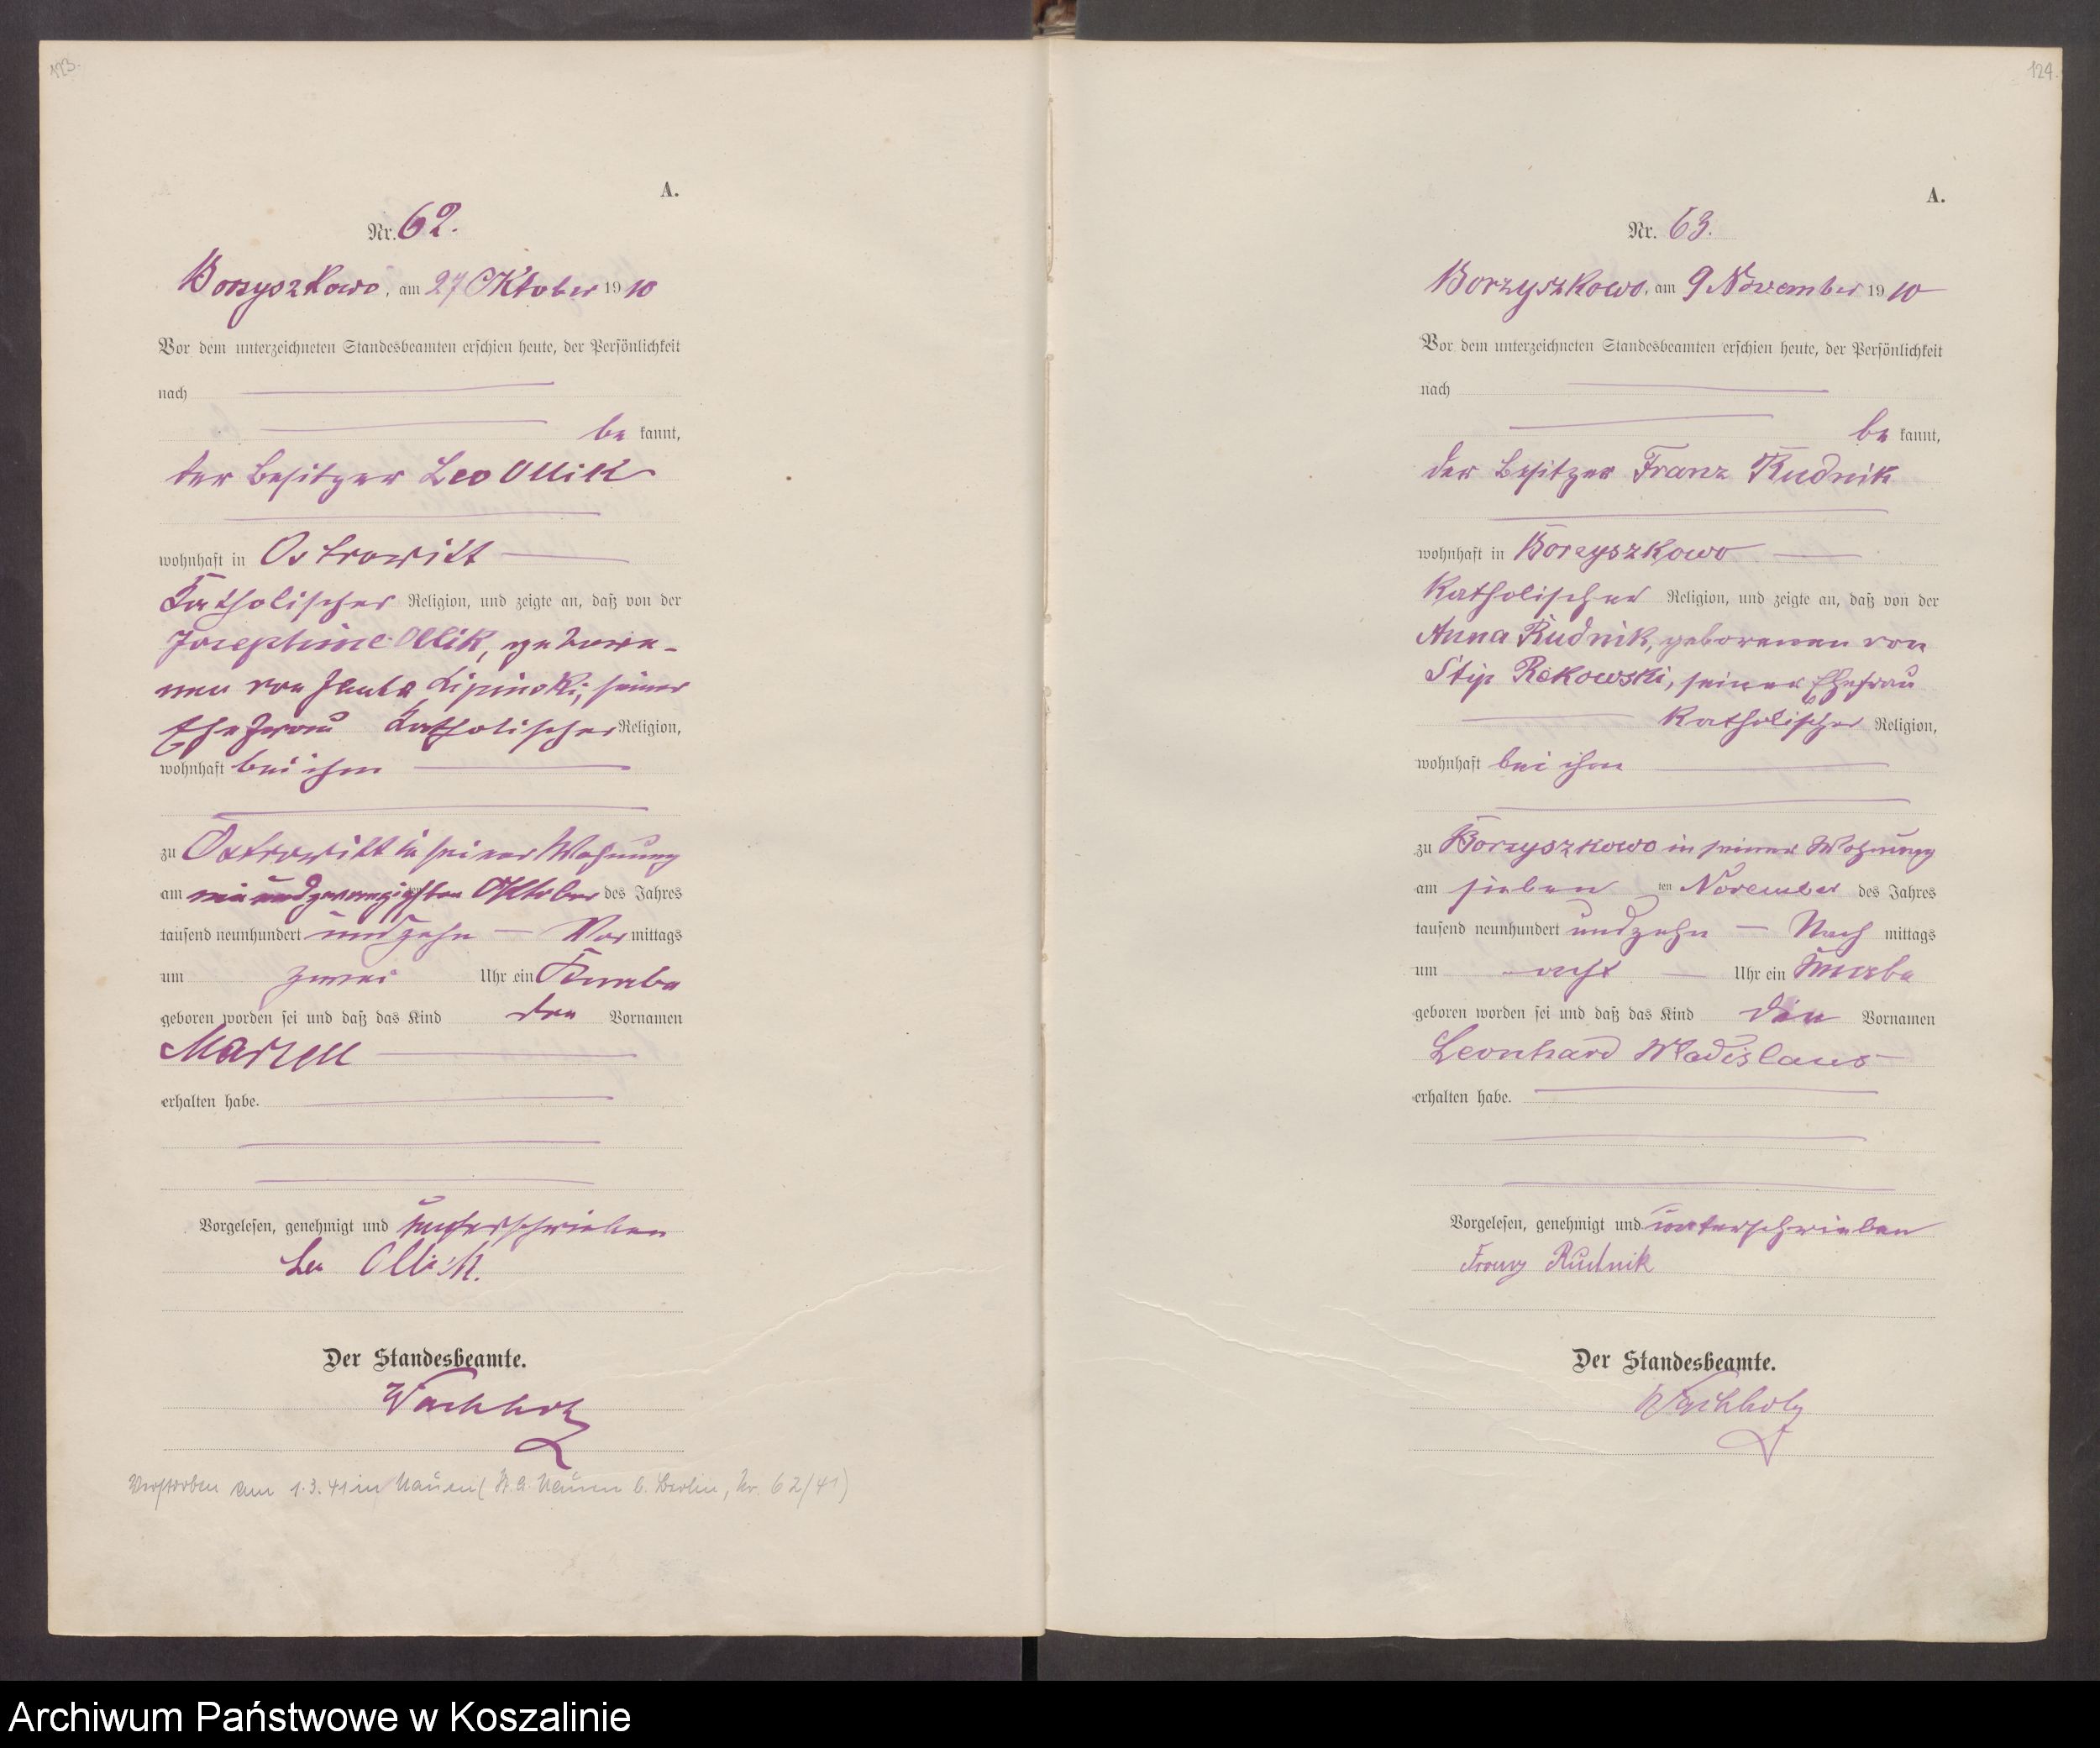 123.
A.
Nr. 62.
Borzyszkowo, am 27 Oktober 1910
Vor dem unterzeichneten Standesbeamten erschien heute, der Persönlichkeit
nach
be kannt,
der Besitzer Leo Ollik
wohnhaft in Ostrowitt
Katholischer Religion, und zeigte an, daß von der
Josephine Ollik, gebore-
nen von Lipinski, seiner
Ehefrau Katholischer Religion,
wohnhaft bei ihm
zu Ostrowitt in seiner Wohnung
am Oktober des Jahres
tausend neunhundert und zehn Vor mittags
um zwei Uhr ein Knabe
geboren worden sei und daß das Kind den Vornamen
Marzell
erhalten habe.
Vorgelesen, genehmigt und unterschrieben
Leo Ollik.
Der Standesbeamte.
Wachholz
Verstorben am 1.3.41 in Nauen (St. A. Nauen b. Berlin, Nr. 62/41)
124.
A.
Nr. 63.
Borzyszkowo, am 9 November 1910
Vor dem unterzeichneten Standesbeamten erschien heute, der Persönlichkeit
nach
be kannt,
der Besitzer Franz Rudnik
wohnhaft in Borzyszkowo
Katholischer Religion, und zeigte an, daß von der
Anna Rudnik, geborenen von
Stip Rekowski, seiner Ehefrau
Katholischer Religion,
wohnhaft bei ihm
zu Borzyszkowo in seiner Wohnung
am sieben ten November des Jahres
tausend neunhundert und zehn Nach mittags
um acht Uhr ein Knabe
geboren worden sei und daß das Kind den Vornamen
Leonhard Wladislaus
erhalten habe.
Vorgelesen, genehmigt und unterschrieben
Franz Rudnik
Der Standesbeamte.
Wachholz
Archiwum Państwowe w Koszalinie